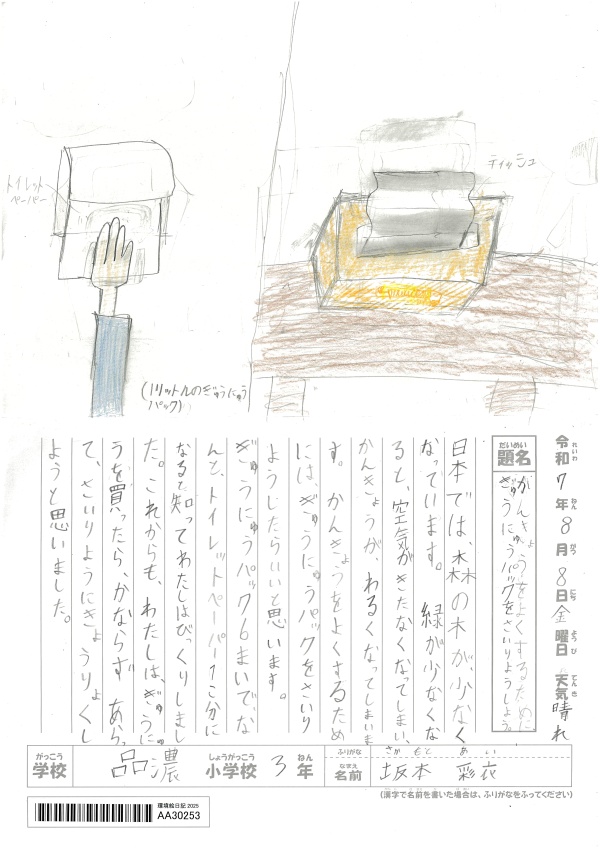 トイレット
ペーパー
ティッシュ
(1リットルのぎゅうにゅう
パック)
令和7年8月8日金曜日 天気晴れ
れいわ ねん がつ にち ようび てんき
だいめい
題名
がんきょうをよくするために、
ぎゅうにゅうパックをさいりようしよう。
日本では、森林の木が少なく
なっています。緑が少なくな
ると、空気がきたなくなってしまい、
かんきょうが、わるくなってしまいま
す。かんきょうをよくするため
には、ぎゅうにゅうパックをさいり
ようしたらいいと思います。
ぎゅうにゅうパック6まいで、な
んと、トイレットペーパー1こ分に
なると知ってわたしはびっくりしまし
た。これからも、わたしは、ぎゅうに
ゅうを買ったら、かならず あらっ
て、さいりようにきょうりょくし
ようと思いました。
がっこう
学校
品濃
しょうがっこう
小学校
3年
ねん
ふりがな
さかもと あい
なまえ
名前
坂本 彩衣
(漢字で名前を書いた場合は、ふりがなをふってください)
環境絵日記 2025
AA30253